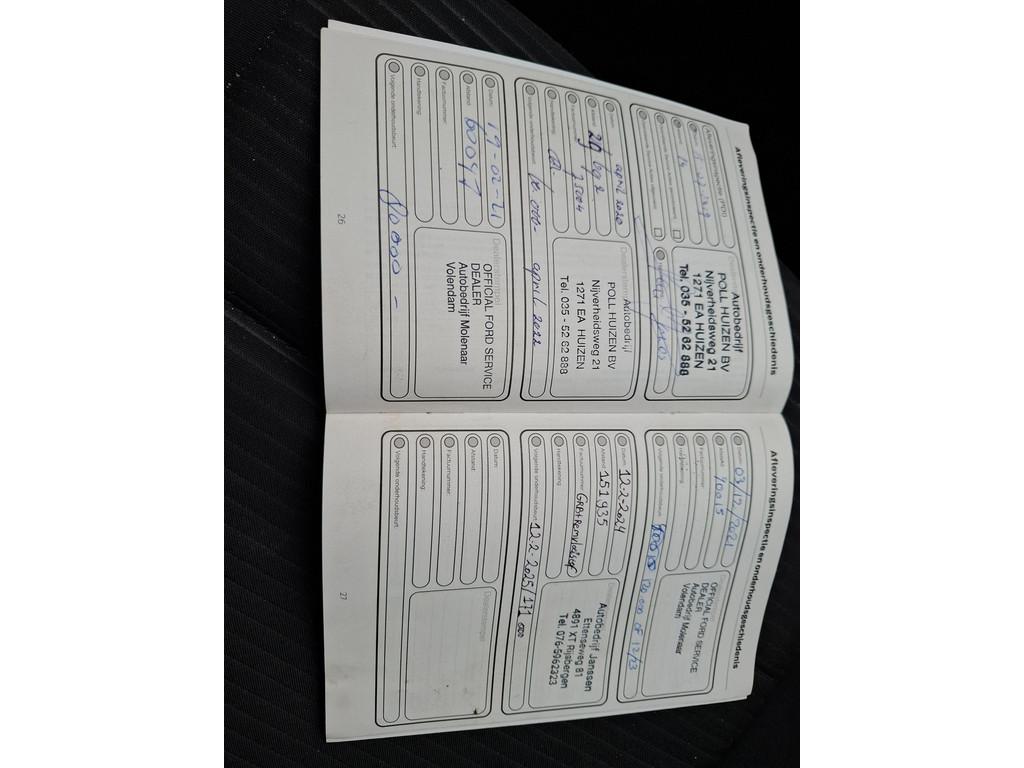 Afleveringsinspectie en onderhoudsgeschiedenis
Afleveringsinspectie (PDI)
Autobedrijf
POLL HUIZEN BV
Nijverheidsweg 21
1271 EA HUIZEN
Tel. 035 - 52 62 888
Datum: april 2020
Afstand:
Factuurnummer: 25004
Handtekening:
Volgende onderhoudsbeurt: 60.000- april 2022
Dealerstempel
Autobedrijf
POLL HUIZEN BV
Nijverheidsweg 21
1271 EA HUIZEN
Tel. 035 - 52 62 888
Datum: 19-02-21
Afstand: 60047
Factuurnummer:
Handtekening:
Volgende onderhoudsbeurt: 80000 -
Dealerstempel
OFFICIAL FORD SERVICE
DEALER
Autobedrijf Molenaar
Volendam
26
Afleveringsinspectie en onderhoudsgeschiedenis
Datum: 03/12/2021
Afstand:
Factuurnummer:
Handtekening:
Volgende onderhoudsbeurt: 120 000 OF 12/23
OFFICIAL FORD SERVICE
DEALER
Autobedrijf Molenaar
Volendam
Datum: 12-2-2024
Afstand: 151,935
Factuurnummer: GRBt+Remvloeistof
Handtekening:
Volgende onderhoudsbeurt: 12-2-2025/171 000
Autobedrijf Janssen
Ettenseweg 81
4891 XT Rijsbergen
Tel. 076-5962323
Datum:
Afstand:
Factuurnummer:
Handtekening:
Volgende onderhoudsbeurt:
Dealerstempel
27